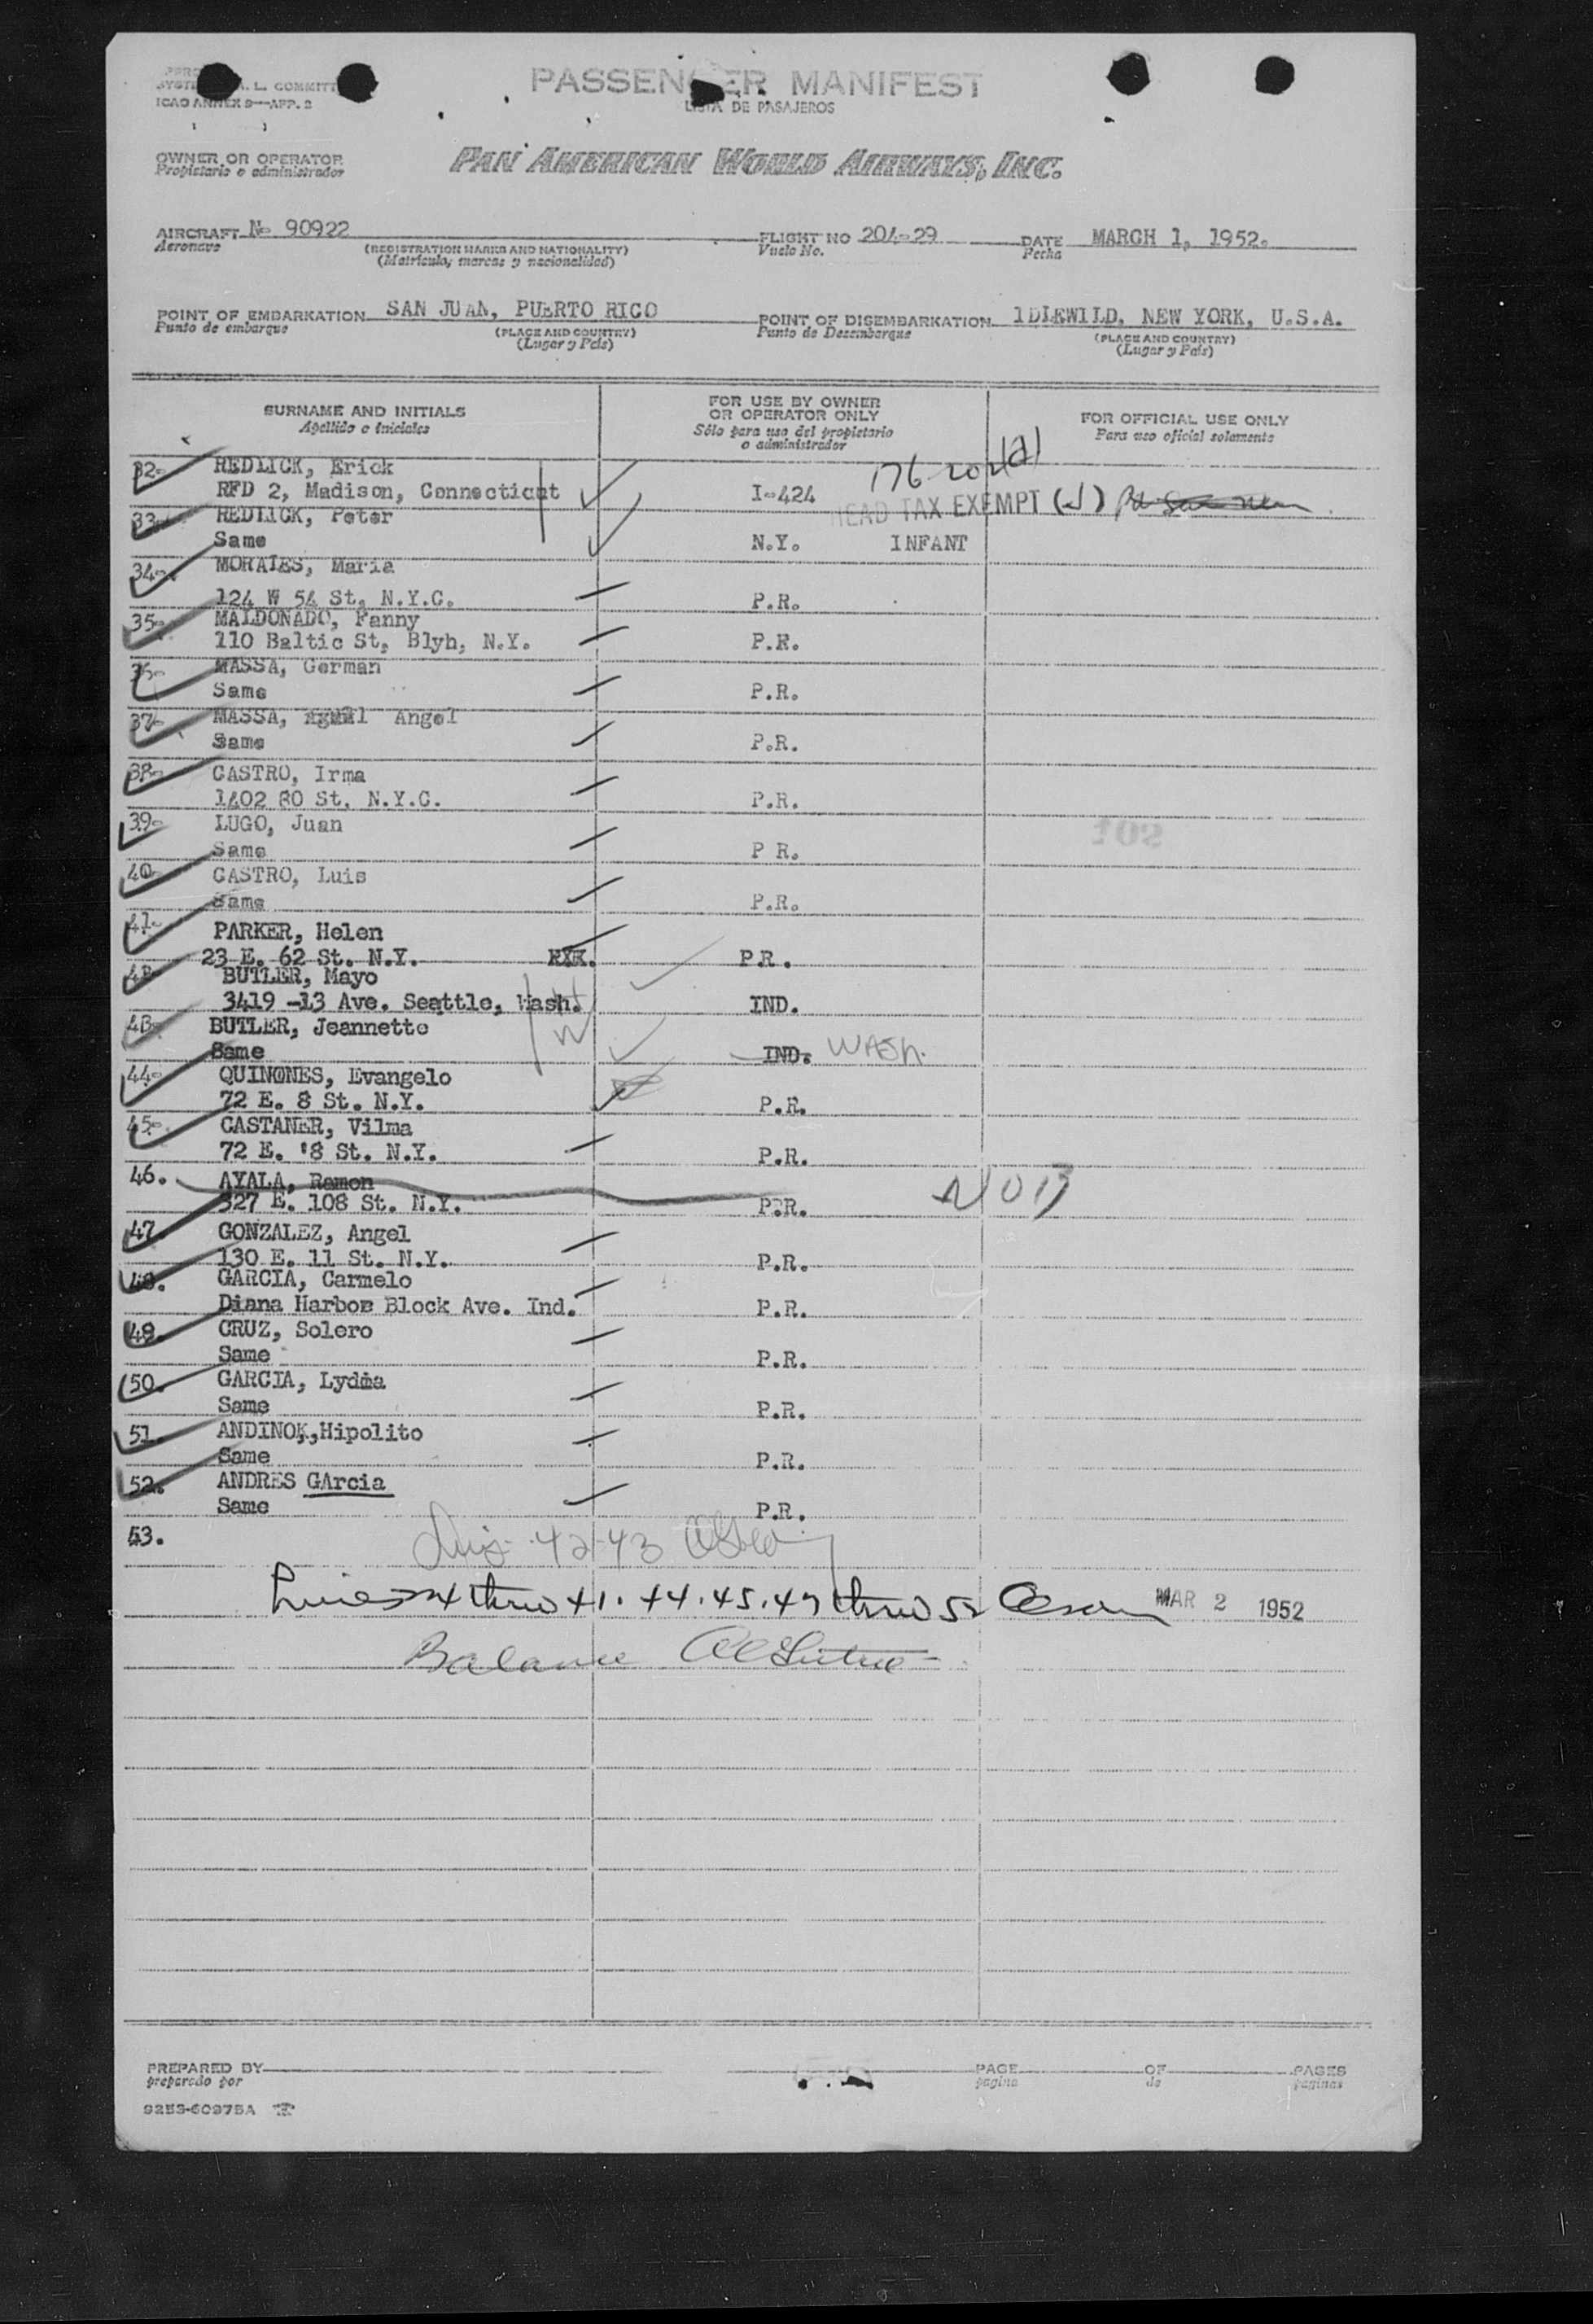 ICAO ANNEX 9—APP. 2
PASSENGER MANIFEST
LISTA DE PASAJEROS
OWNER OR OPERATOR
Propietario o administrador
PAN AMERICAN WORLD AIRWAYS, INC.
AIRCRAFT N- 90922
Aeronave
(REGISTRATION MARKS AND NATIONALITY)
(Matricula, marcas y nacionalidad)
FLIGHT NO 204-29
Vuelo No.
DATE MARCH 1, 1952.
Fecha
POINT OF EMBARKATION SAN JUAN, PUERTO RICO
Punto de embarque
(PLACE AND COUNTRY)
(Lugar y País)
POINT OF DISEMBARKATION IDLEWILD, NEW YORK, U.S.A.
Punto de Desembarque
(PLACE AND COUNTRY)
(Lugar y País)
SURNAME AND INITIALS
Apellido e iniciales
FOR USE BY OWNER
OR OPERATOR ONLY
Sólo para uso del propietario
o administrador
FOR OFFICIAL USE ONLY
Para uso oficial solamente
32- REDLICK, Erick
RFD 2, Madison, Connecticut I-424 HEAD TAX EXEMPT
33- REDLICK, Peter
Same N.Y. INFANT
34- MORALES, Maria
124 W 54 St, N.Y.C. P.R.
35- MALDONADO, Fanny
110 Baltic St, Blyh, N.Y. P.R.
36- MASSA, German
Same P.R.
37- MASSA, Angel
Same P.R.
38- CASTRO, Irma
1402 80 St, N.Y.C. P.R.
39- LUGO, Juan
Same P R.
40- CASTRO, Luis
Same P.R.
41- PARKER, Helen
23 E. 62 St. N.Y. P.R.
42- BUTLER, Mayo
3419 -13 Ave. Seattle, Wash. IND.
43- BUTLER, Jeannette
Same IND. WASH.
44- QUINONES, Evangelo
72 E. 8 St. N.Y. P.R.
45- CASTANER, Vilma
72 E. '8 St. N.Y. P.R.
46. AYALA, Ramon
327 E. 108 St. N.Y. P.R. NOB
47. GONZALEZ, Angel
130 E. 11 St. N.Y. P.R.
48. GARCIA, Carmelo
Diana Harbor Block Ave. Ind. P.R.
49. CRUZ, Solero
Same P.R.
50. GARCIA, Lydia
Same P.R.
51. ANDINO,Hipolito
Same P.R.
52. ANDRES GArcia
Same P.R.
53.
42-43
Lines 34 thru 41. 44. 45. 47 thru 52 MAR 2 1952
Balance
PREPARED BY
preparado por
PAGE OF PAGES
pagina de paginas
9253-60975A